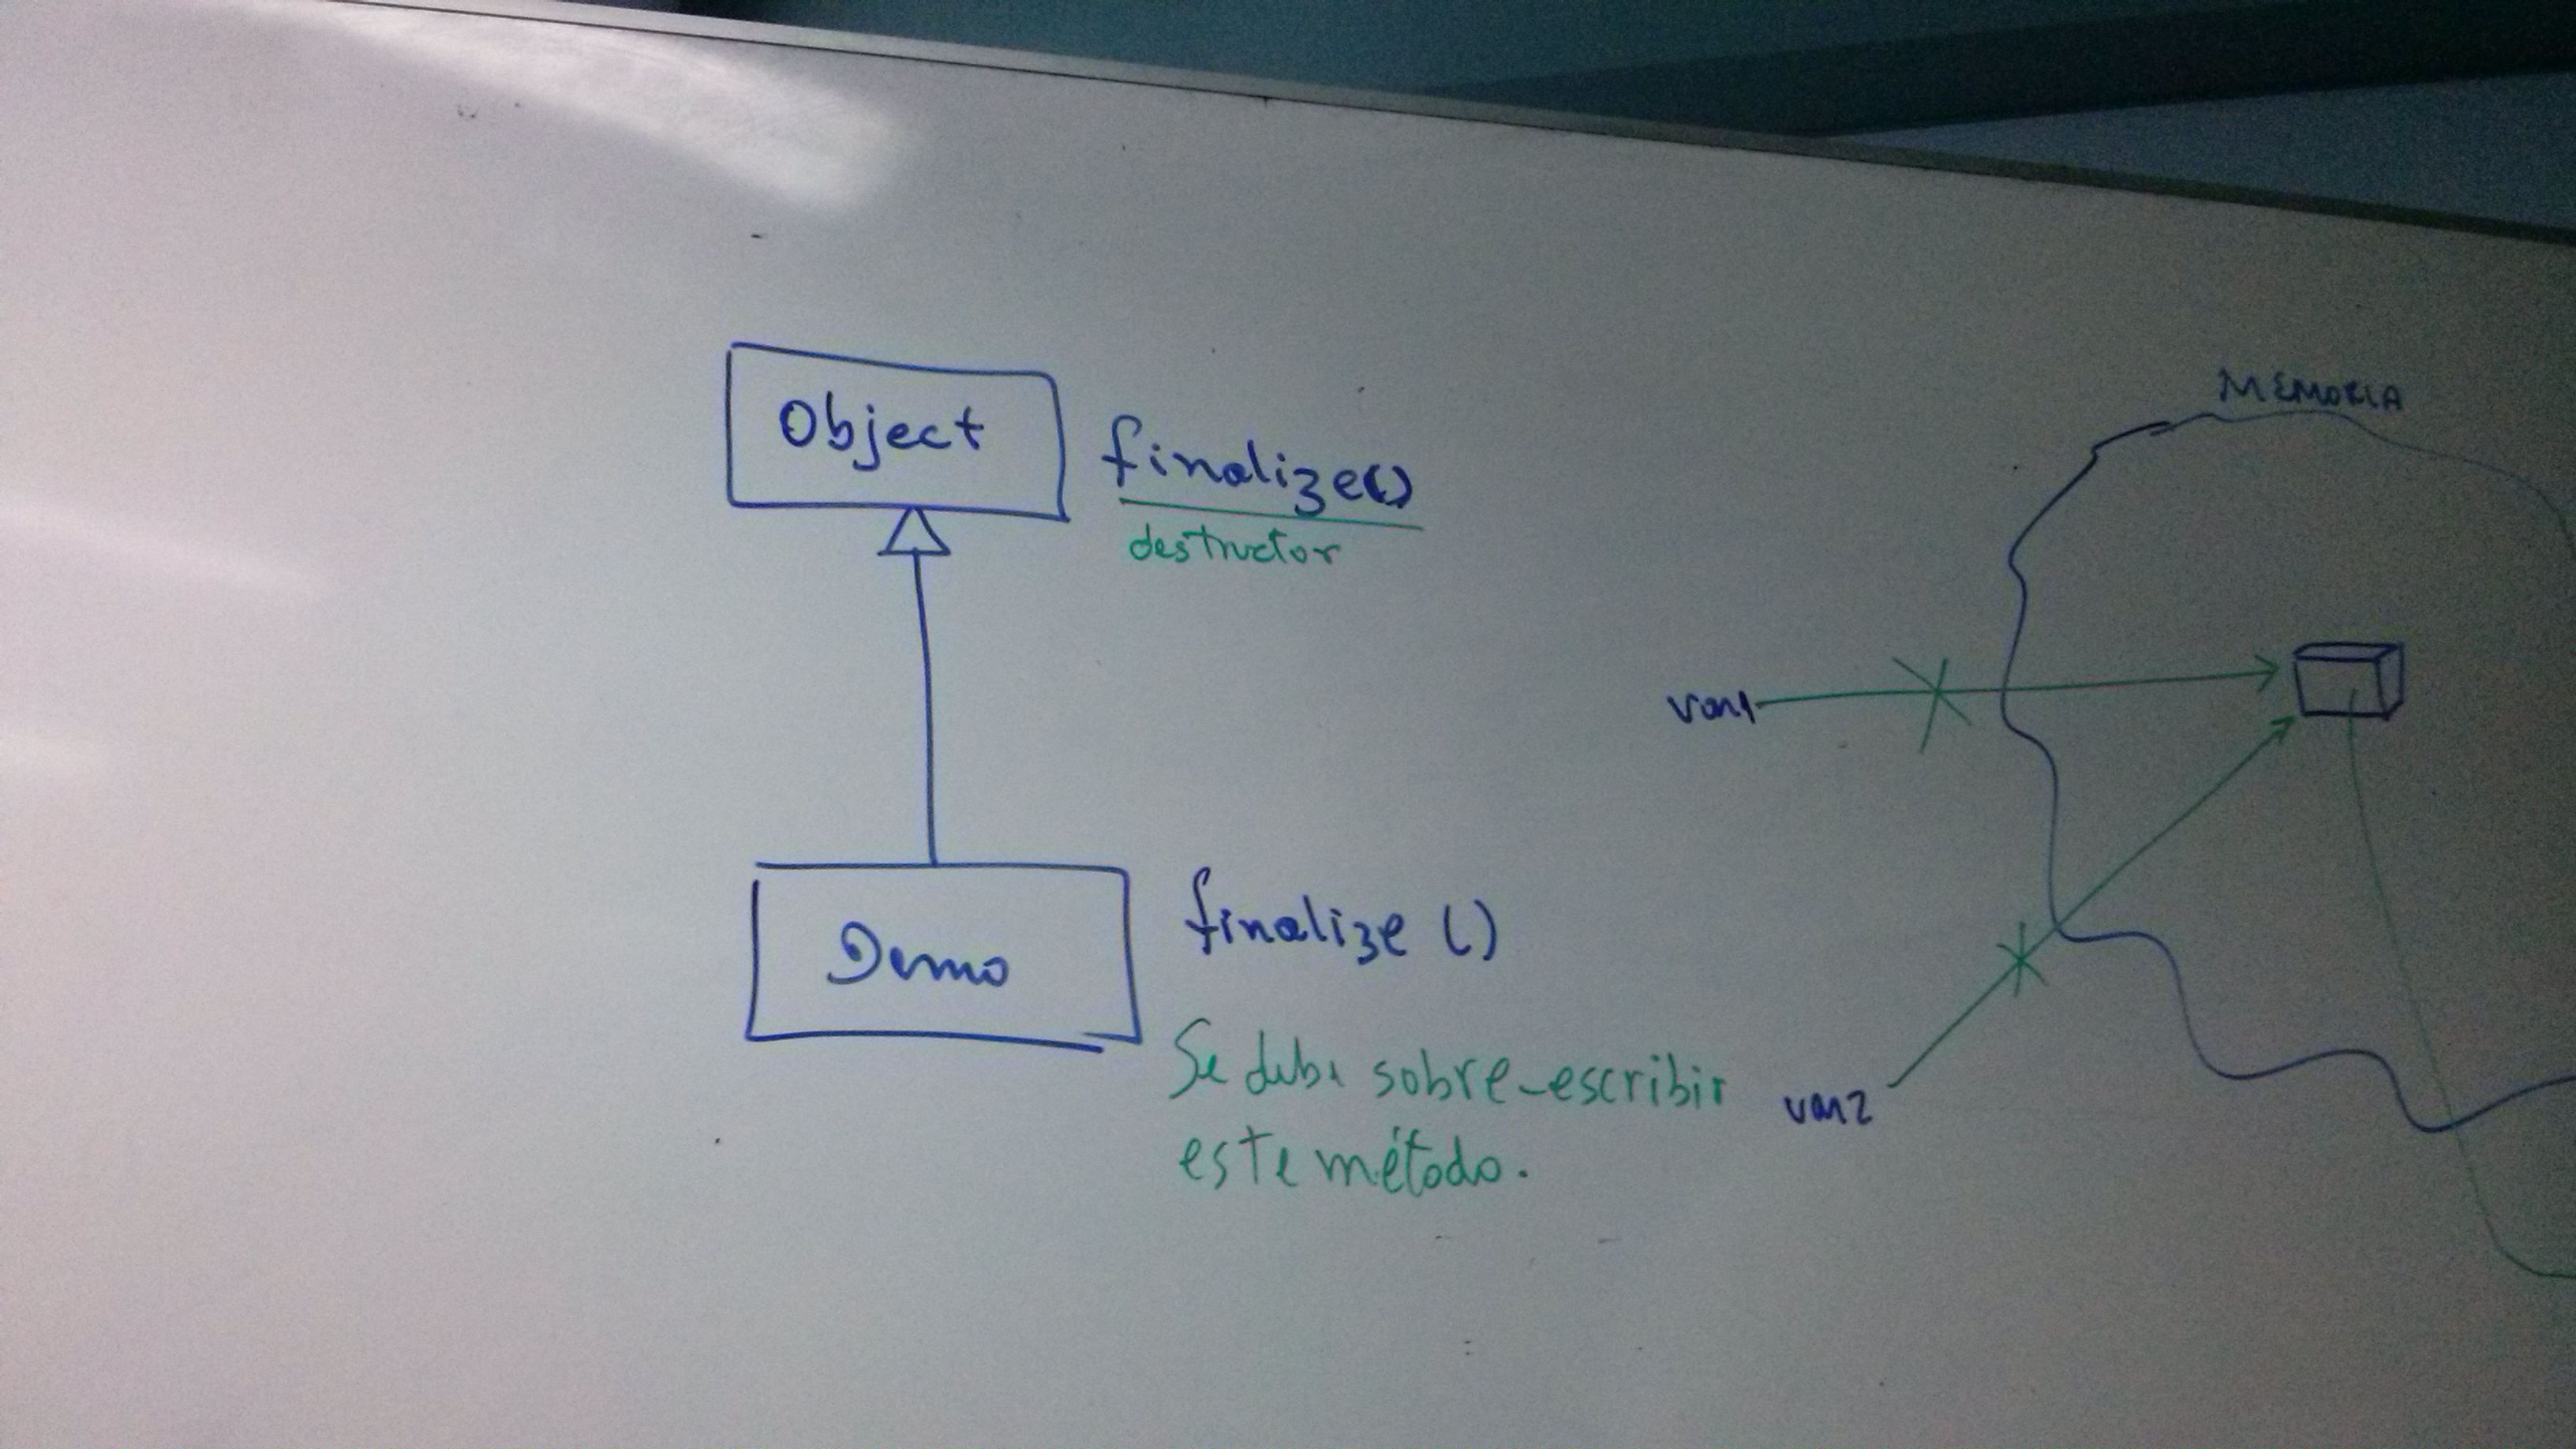 Object
finalize()
destructor
Demo
finalize ()
Se debe sobre-escribir
este método.
MEMORIA
var1
var2